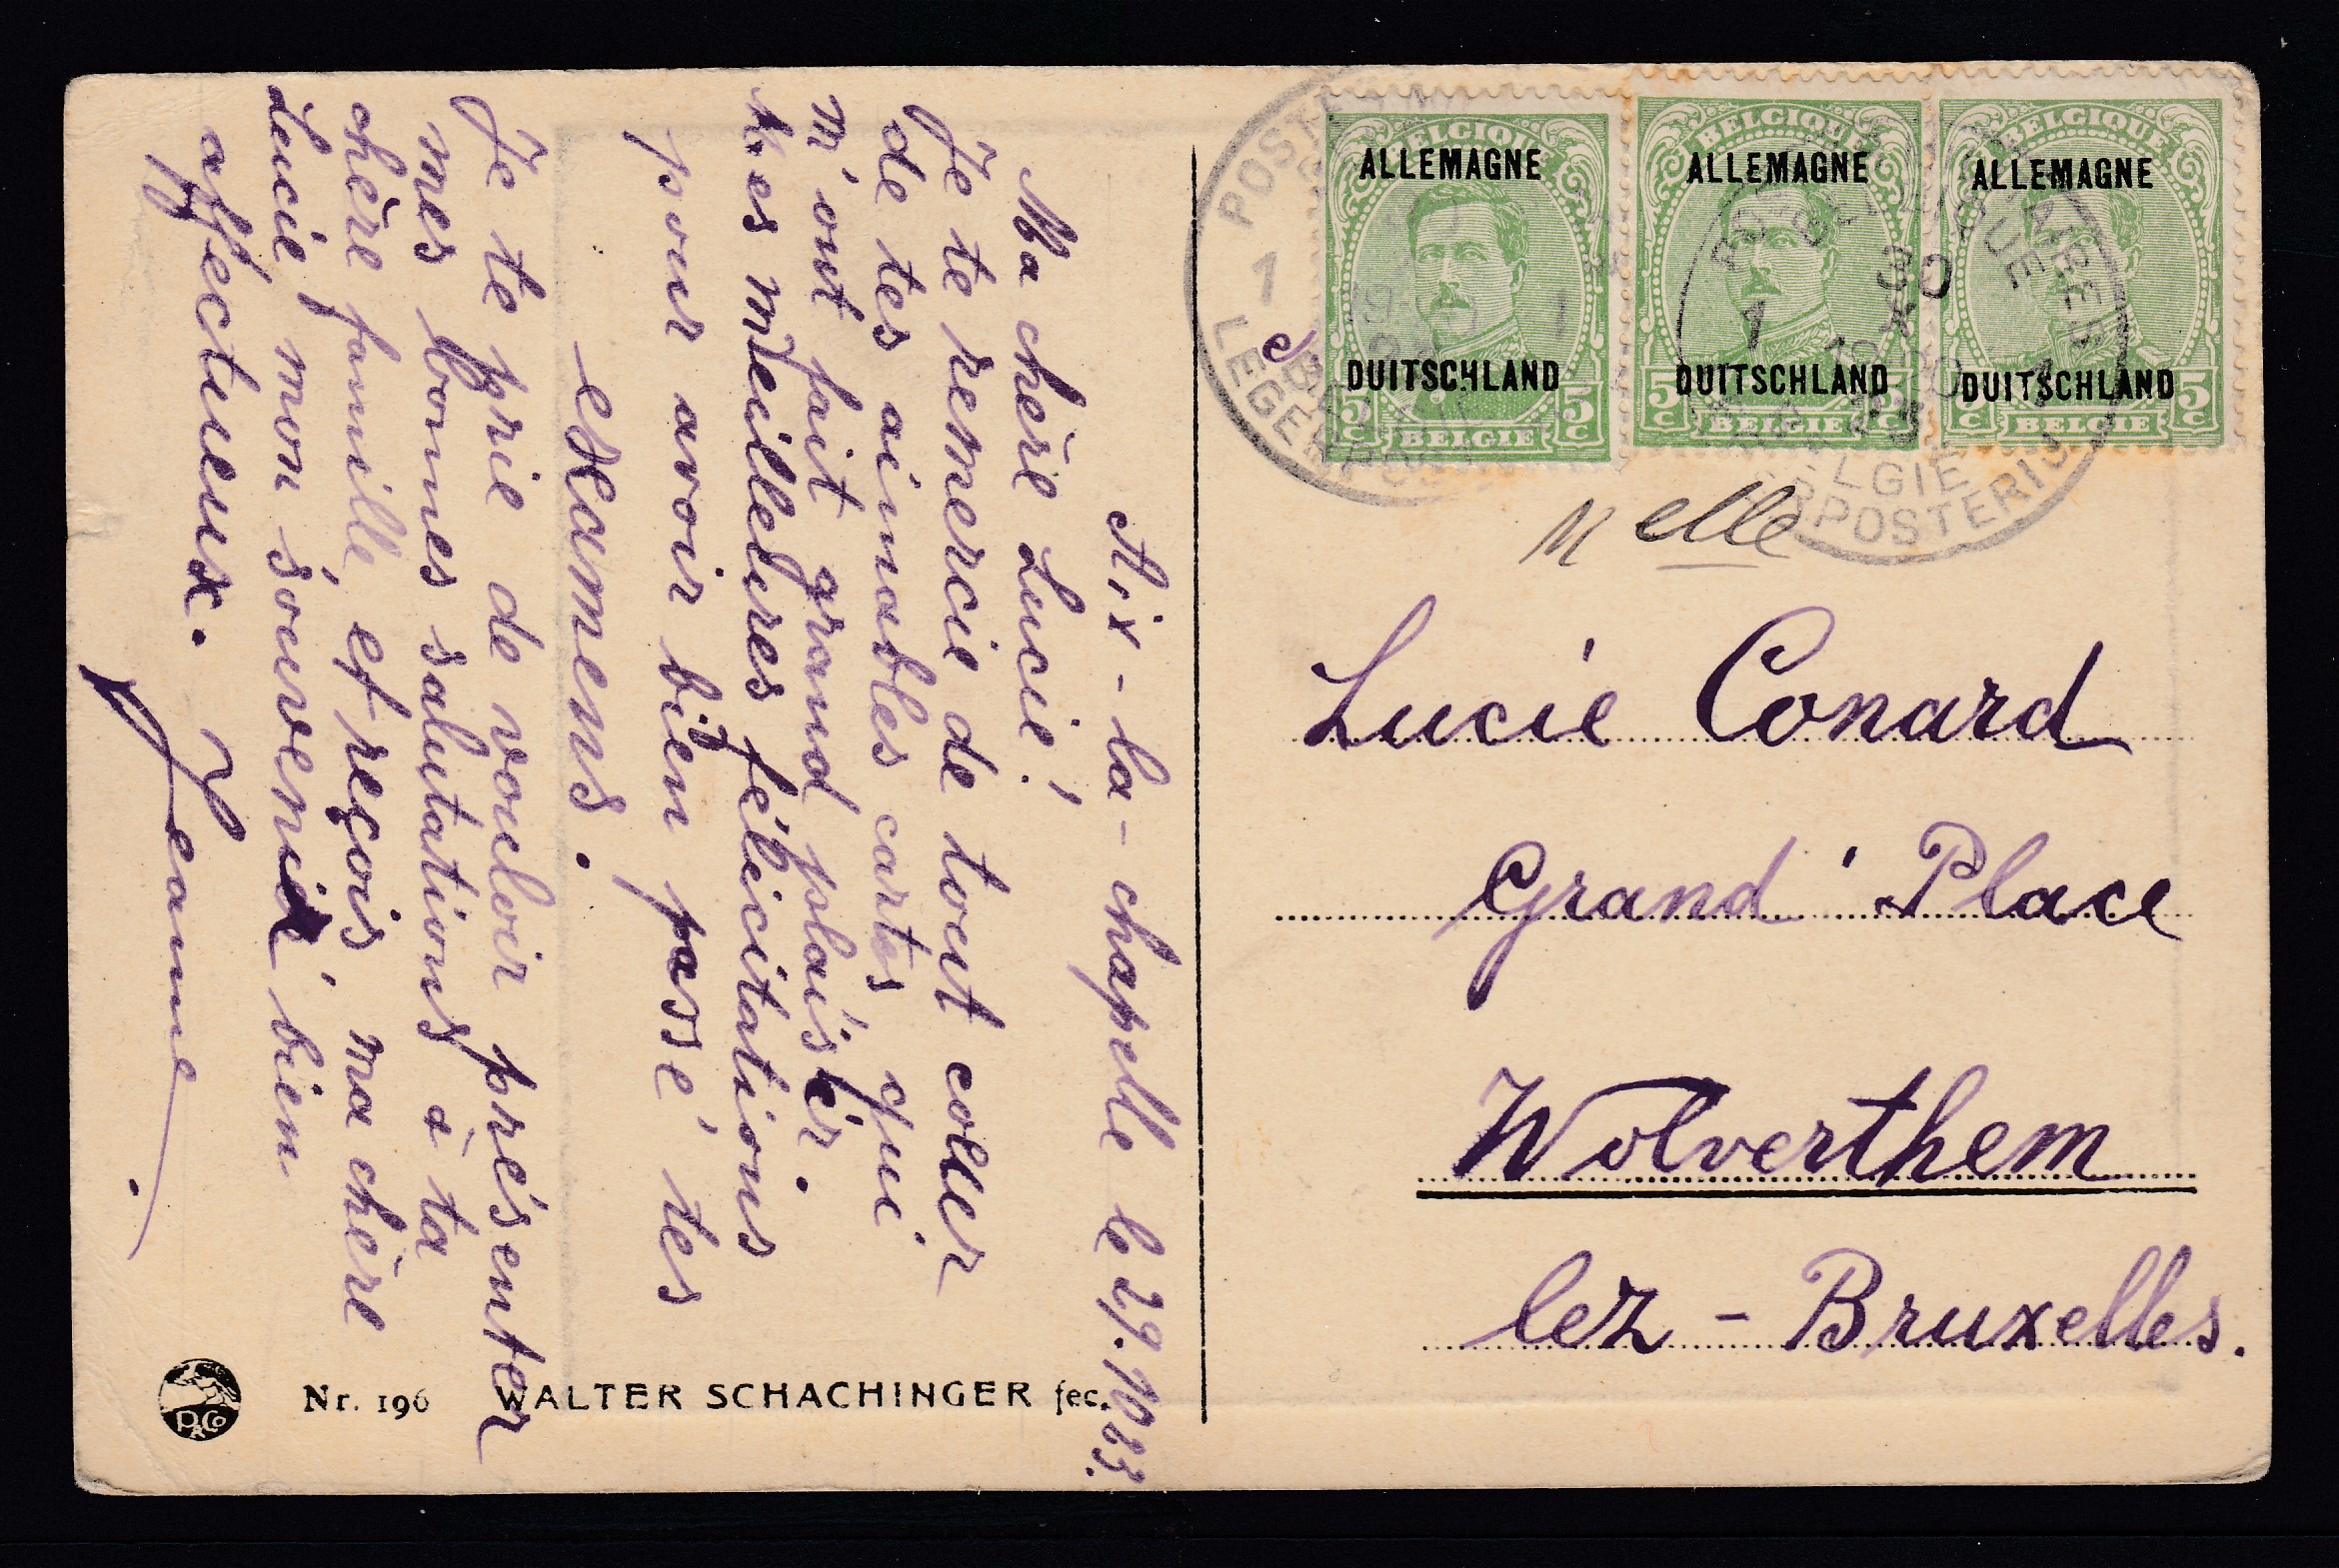 Aix-la-chapelle le 29.10.23.
Ma chère Lucie,
Je te remercie de tout coeur
de tes aimables cartes qui
m'ont fait grand plaisir.
Mes meilleures félicitations
pour avoir bien passé tes
examens.
Je te prie de vouloir présenter
mes bonnes salutations à ta
chère famille, et reçois ma chère
Lucie, mon souvenir bien
affectueux.
Jeanne.
Nr. 196 WALTER SCHACHINGER fec.
BELGIQUE
ALLEMAGNE
DUITSCHLAND
5c 5c
BELGIE
BELGIQUE
ALLEMAGNE
DUITSCHLAND
5c 5c
BELGIE
BELGIQUE
ALLEMAGNE
DUITSCHLAND
5c
BELGIE
1
1
30
X
LEGERPOSTERIJ
Melle
Lucie Conard
Grand'Place
Wolverthem
lez-Bruxelles.